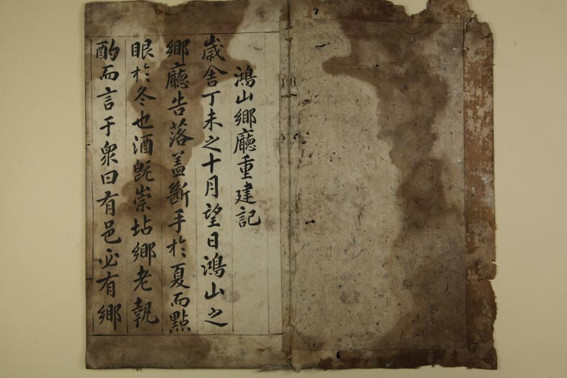 鴻山鄕廳重建記
歲舍丁未之十月望日鴻山之
鄕廳告落盖斷手於夏而點
眼於冬也酒旣崇坫鄕老執
酌而言于衆曰有邑必有鄕